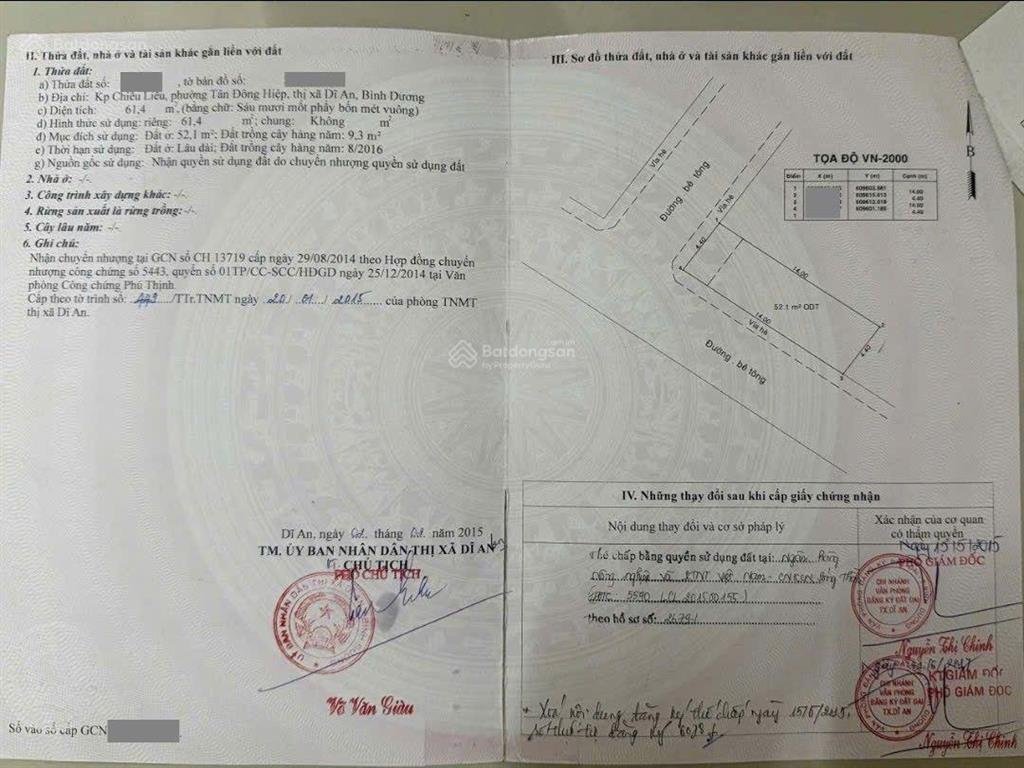 II. Thửa đất, nhà ở và tài sản khác gắn liền với đất
1. Thửa đất:
a) Thửa đất số: , tờ bản đồ số:
b) Địa chỉ: Kp Chiêu Liêu, phường Tân Đông Hiệp, thị xã Dĩ An, Bình Dương
c) Diện tích: 61,4 m², (bằng chữ: Sáu mươi mốt phẩy bốn mét vuông)
d) Hình thức sử dụng: riêng: 61,4 m²; chung: Không m²
đ) Mục đích sử dụng: Đất ở: 52,1 m²; Đất trồng cây hàng năm: 9,3 m²
e) Thời hạn sử dụng: Đất ở: Lâu dài; Đất trồng cây hàng năm: 8/2016
g) Nguồn gốc sử dụng: Nhận quyền sử dụng đất do chuyển nhượng quyền sử dụng đất
2. Nhà ở: -/-
3. Công trình xây dựng khác: -/-
4. Rừng sản xuất là rừng trồng: -/-
5. Cây lâu năm: -/-
6. Ghi chú:
Nhận chuyển nhượng tại GCN số CH 13719 cấp ngày 29/08/2014 theo Hợp đồng chuyển
nhượng công chứng số 5443, quyển số 01TP/CC-SCC/HĐGD ngày 25/12/2014 tại Văn
phòng Công chứng Phú Thịnh
Cấp theo tờ trình số: /TTr.TNMT ngày 20/01/2015 của phòng TNMT
thị xã Dĩ An.
Batdongsan
.com.vn
by PropertyGuru
Dĩ An, ngày tháng năm 2015
TM. ỦY BAN NHÂN DÂN THỊ XÃ DĨ AN
KT. CHỦ TỊCH
PHÓ CHỦ TỊCH
Võ Văn Giàu
Số vào sổ cấp GCN
III. Sơ đồ thửa đất, nhà ở và tài sản khác gắn liền với đất
B
TỌA ĐỘ VN-2000
Điểm X (m) Y (m) Cạnh (m)
1
2 14.00
3 4.40
4 14.00
1 4.40
Vỉa hè
Đường bê tông
Vỉa hè
4.40
14.00
52.1 m² ODT
14.00
Vỉa hè
4.40
Đường bê tông
IV. Những thay đổi sau khi cấp giấy chứng nhận
Nội dung thay đổi và cơ sở pháp lý
Xác nhận của cơ quan
có thẩm quyền
Thế chấp bằng quyền sử dụng đất tại: Ngân hàng
Nông nghiệp và PTNT Việt Nam
theo hồ sơ số: 2679
Ngày 15/5/2015
PHÓ GIÁM ĐỐC
CHI NHÁNH
VĂN PHÒNG
ĐĂNG KÝ ĐẤT ĐAI
TX.DĨ AN
Nguyễn Thị Chinh
KT.GIÁM ĐỐC
PHÓ GIÁM ĐỐC
CHI NHÁNH
VĂN PHÒNG
ĐĂNG KÝ ĐẤT ĐAI
TX.DĨ AN
Nguyễn Thị Chinh
* Xoá nội dung đăng ký thế chấp ngày 15/5/2015,
số thứ tự đăng ký